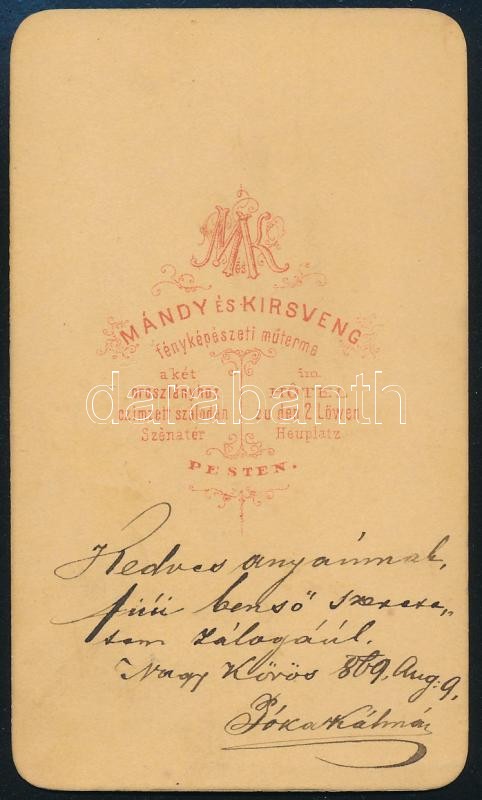 MK
és
MÁNDY ÉS KIRSVENG
fényképészeti műterme
a két
oroszlányhoz
czimzett szálodán
Szénatér
im
HÔTEL
zu den 2 Löwen
Heuplatz
PESTEN.
darabanth
Kedves anyáimnak,
fiúi benső szerete„
tem zálogáúl.
Nagy Körös 869. Aug. 9.
Póka Kálmán